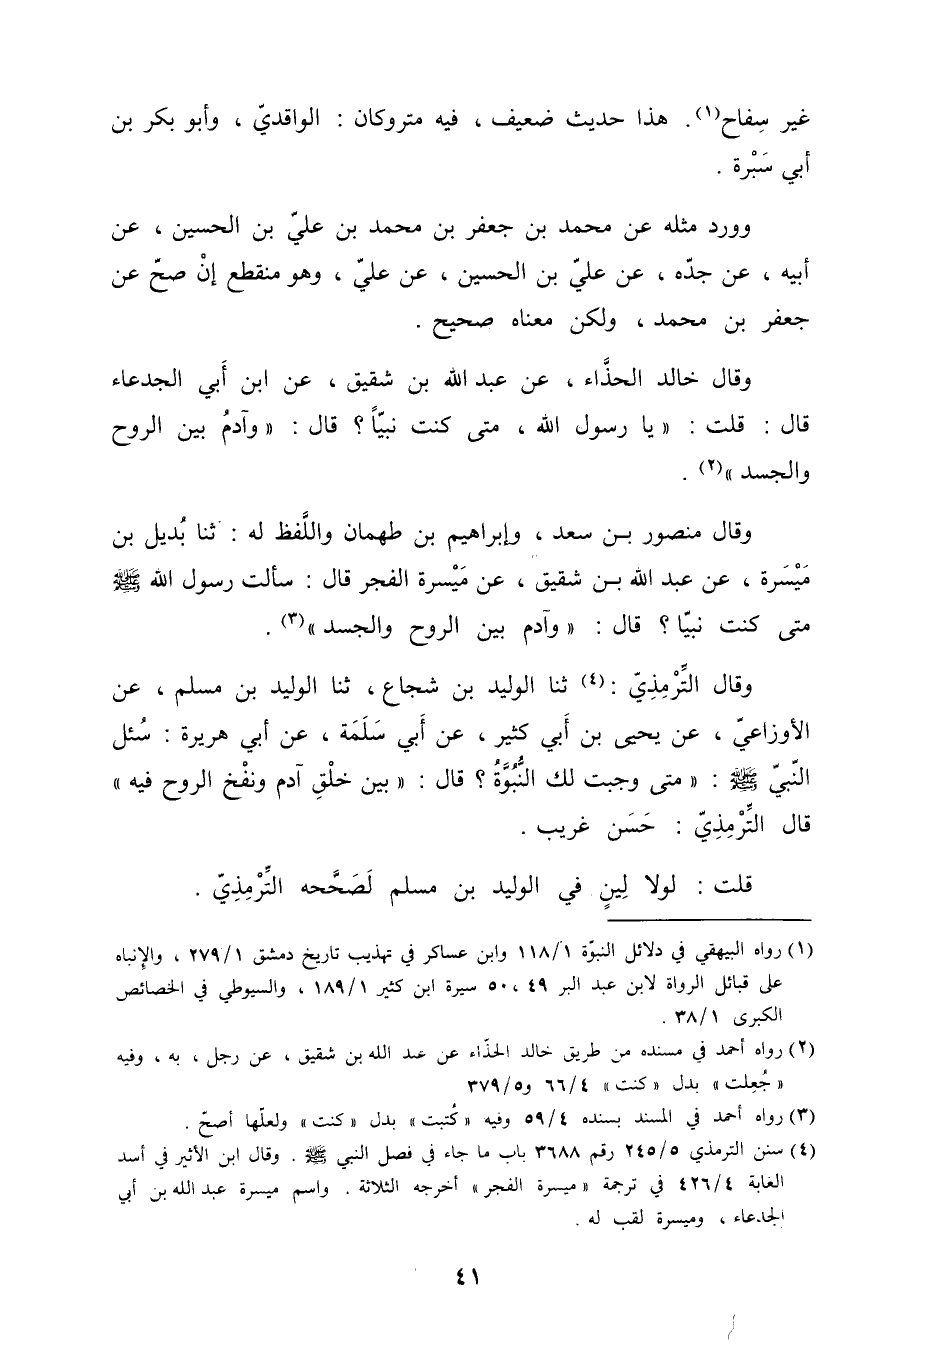 غير سِفاح(١). هذا حديث ضعيف ، فيه متروكان : الواقديّ ، وأبو بكر بن
أبي سَبْرة .
وورد مثله عن محمد بن جعفر بن محمد بن عليّ بن الحسين ، عن
أبيه ، عن جدّه ، عن عليّ بن الحسين ، عن عليّ ، وهو منقطع إنْ صحّ عن
جعفر بن محمد ، ولكن معناه صحيح .
وقال خالد الحذَّاء ، عن عبد الله بن شقيق ، عن ابن أَبي الجدعاء
قال : قلت : « يا رسول الله ، متى كنت نبيّاً ؟ قال : « وآدمُ بين الروح
والجسد »(٢) .
وقال منصور بن سعد ، وإبراهيم بن طهمان واللَّفظ له : ثنا بُديل بن
مَيْسَرة ، عن عبد الله بن شقيق ، عن مَيْسرة الفجر قال : سألت رسول الله ﷺ
متى كنت نبيّا ؟ قال : « وآدم بين الروح والجسد »(٣) .
وقال التِّرْمِذِيّ :(٤) ثنا الوليد بن شجاع ، ثنا الوليد بن مسلم ، عن
الأوزاعيّ ، عن يحيى بن أَبي كثير ، عن أَبي سَلَمَة ، عن أبي هريرة : سُئل
النّبيّ ﷺ : « متى وجبت لك النُّبُوَّةُ ؟ قال : « بين خلْقِ آدم ونفْخ الروح فيه »
قال التِّرْمِذِيّ : حَسَن غريب .
قلت : لولا لِينٍ في الوليد بن مسلم لَصَحَّحه التِّرْمِذِيّ .
(١) رواه البيهقي في دلائل النبوّة ١١٨/١ وابن عساكر في تهذيب تاريخ دمشق ٢٧٩/١ ، والإنباه
على قبائل الرواة لابن عبد البر ٤٩ ، ٥٠ سيرة ابن كثير ١٨٩/١ ، والسيوطي في الخصائص
الكبرى ٣٨/١ .
(٢) رواه أحمد في مسنده من طريق خالد الحذّاء عن عبد الله بن شقيق ، عن رجل ، به ، وفيه
« جُعِلت » بدل « كنت » ٦٦/٤ و٣٧٩/٥
(٣) رواه أحمد في المسند بسنده ٥٩/٤ وفيه « كُتبت » بدل « كنت » ولعلّها أصحّ .
(٤) سنن الترمذي ٢٤٥/٥ رقم ٣٦٨٨ باب ما جاء في فصل النبي ﷺ . وقال ابن الأثير في أسد
الغابة ٤٢٦/٤ في ترجمة « ميسرة الفجر » أخرجه الثلاثة . واسم ميسرة عبد الله بن أبي
الجدعاء ، وميسرة لقب له .
٤١